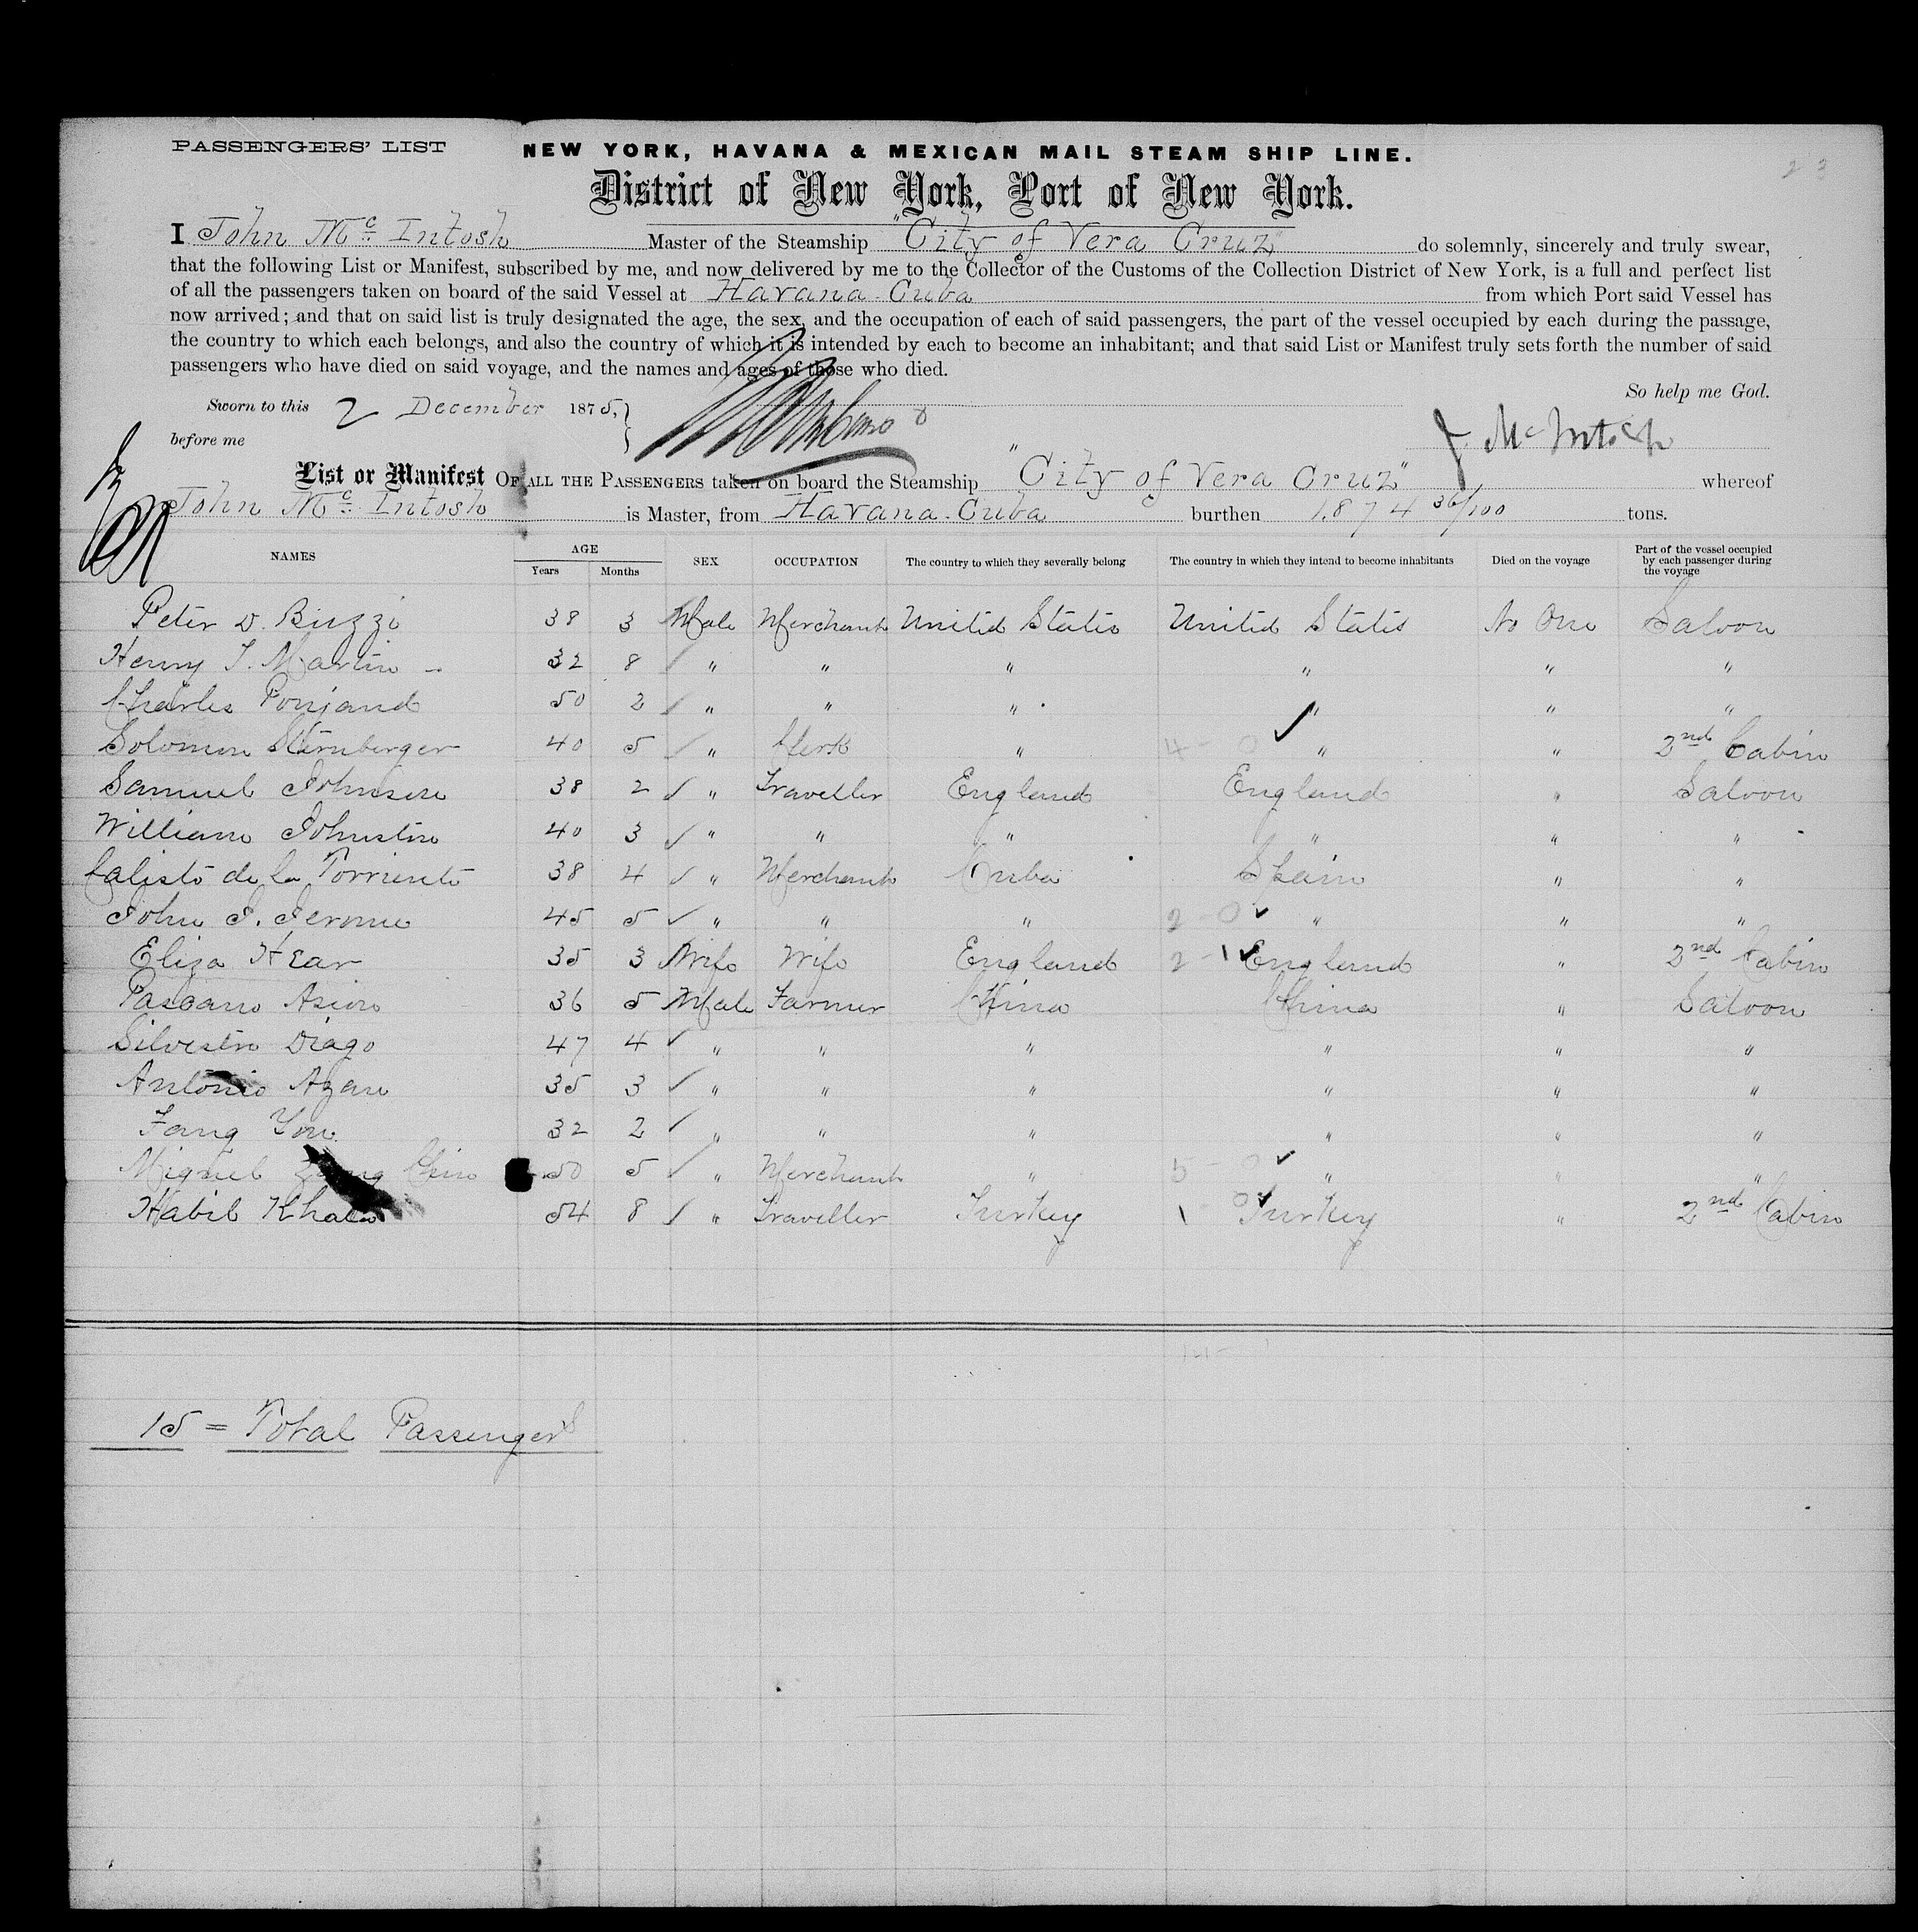 PASSENGERS' LIST
NEW YORK, HAVANA & MEXICAN MAIL STEAM SHIP LINE.
23
District of New York, Port of New York.
I John Mc Intosh Master of the Steamship "City of Vera Cruz" do solemnly, sincerely and truly swear,
that the following List or Manifest, subscribed by me, and now delivered by me to the Collector of the Customs of the Collection District of New York, is a full and perfect list
of all the passengers taken on board of the said Vessel at Havana-Cuba from which Port said Vessel has
now arrived; and that on said list is truly designated the age, the sex, and the occupation of each of said passengers, the part of the vessel occupied by each during the passage,
the country to which each belongs, and also the country of which it is intended by each to become an inhabitant; and that said List or Manifest truly sets forth the number of said
passengers who have died on said voyage, and the names and ages of those who died.
So help me God.
Sworn to this 2 December 1875,
before me
J McIntosh
List or Manifest OF ALL THE PASSENGERS taken on board the Steamship "City of Vera Cruz" whereof
John Mc Intosh is Master, from Havana-Cuba burthen 1.874 36/100 tons.
NAMES AGE Years Months SEX OCCUPATION The country to which they severally belong The country in which they intend to become inhabitants Died on the voyage Part of the vessel occupied by each passenger during the voyage
Peter D. Buzzi 38 3 Male Merchant United States United States No One Saloon
Henry T. Martin 32 8 " " " " " "
Charles 50 2 " " " " " "
Solomon Sternberger 40 5 " Clerk " 4 - 0 " " 2nd Cabin
Samuel Johnson 38 2 " Traveller England England " Saloon
William Johnston 40 3 " " " " " "
Calisto de la Torriente 38 4 " Merchant Cuba Spain " "
John J. Jerome 45 5 " " " 2 - 0 " " "
Eliza Hear 35 3 Wife Wife England 2 - 1 England " 2nd Cabin
36 5 Male Farmer China China " Saloon
Silvestre Diago 47 4 " " " " " "
Antonio 35 3 " " " " " "
Fang You 32 2 " " " " " "
Miguel 50 5 " Merchant " 5 - 0 " " "
Habib 54 8 " Traveller Turkey 1 - 0 Turkey " 2nd Cabin
15 = Total Passengers